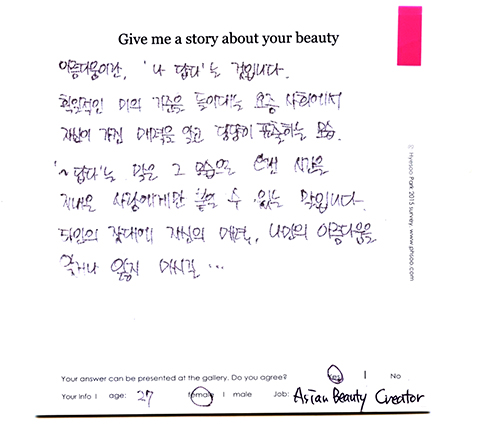 Give me a story about your beauty
아름다움이란, '나 답다'는 것입니다.
획일적인 미의 기준을 들이대는 요즘 사회에서
자신이 가진 매력을 알고 당당히 표출하는 모습.
'~답다'는 말은 그 모습으로 오랜 시간을
지내온 사람에게만 붙일 수 있는 말입니다.
타인의 잣대에 자신의 매력, 나만의 아름다움을
잃거나 잊지 마시길 …
Your answer can be presented at the gallery. Do you agree? Yes I No
Your info I age: 27 female I male Job: Asian Beauty Creator
© Hyesoo Park 2015 survey www.phsoo.com